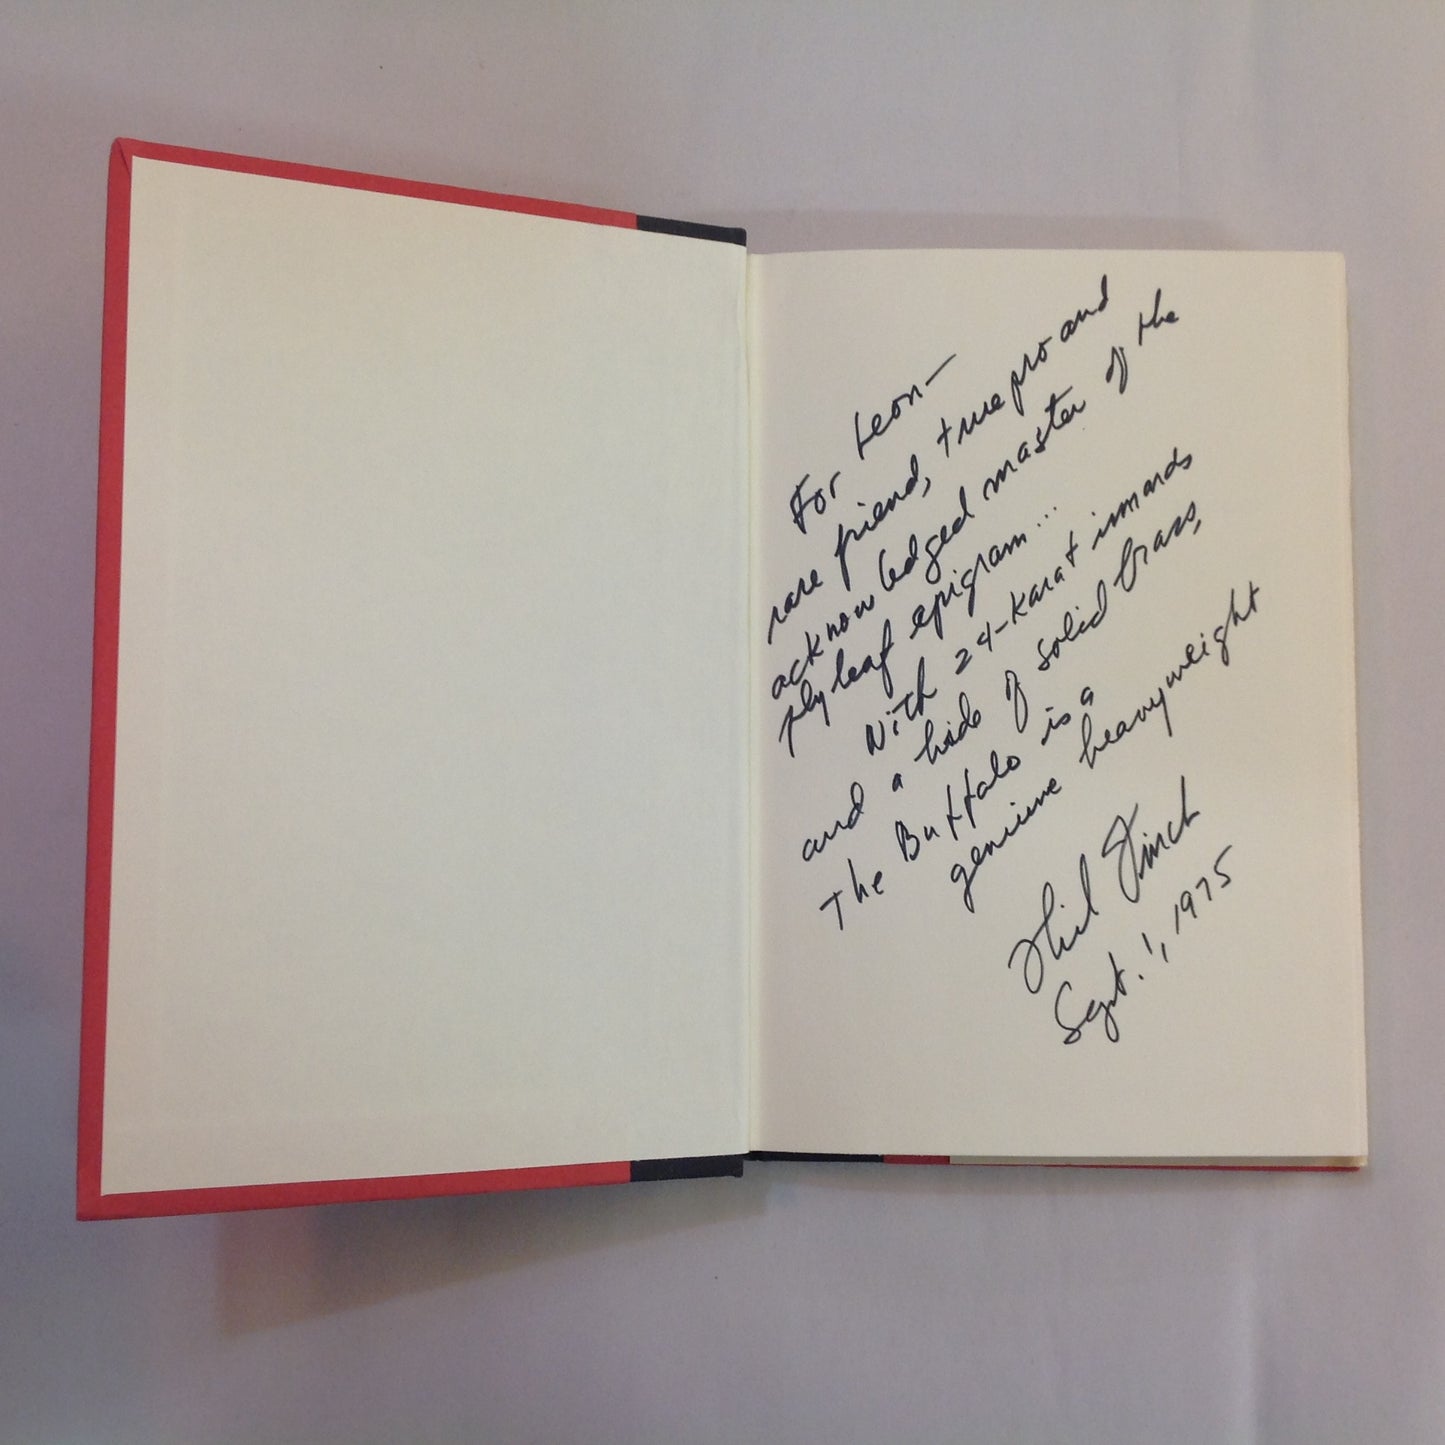 For Leon—
rare friend, true pro and
acknowledged master of the
flyleaf epigram...
With 24-karat innards
and a hide of solid brass,
The Buffalo is a
genuine heavyweight
Phil Finch
Sept. 1, 1975